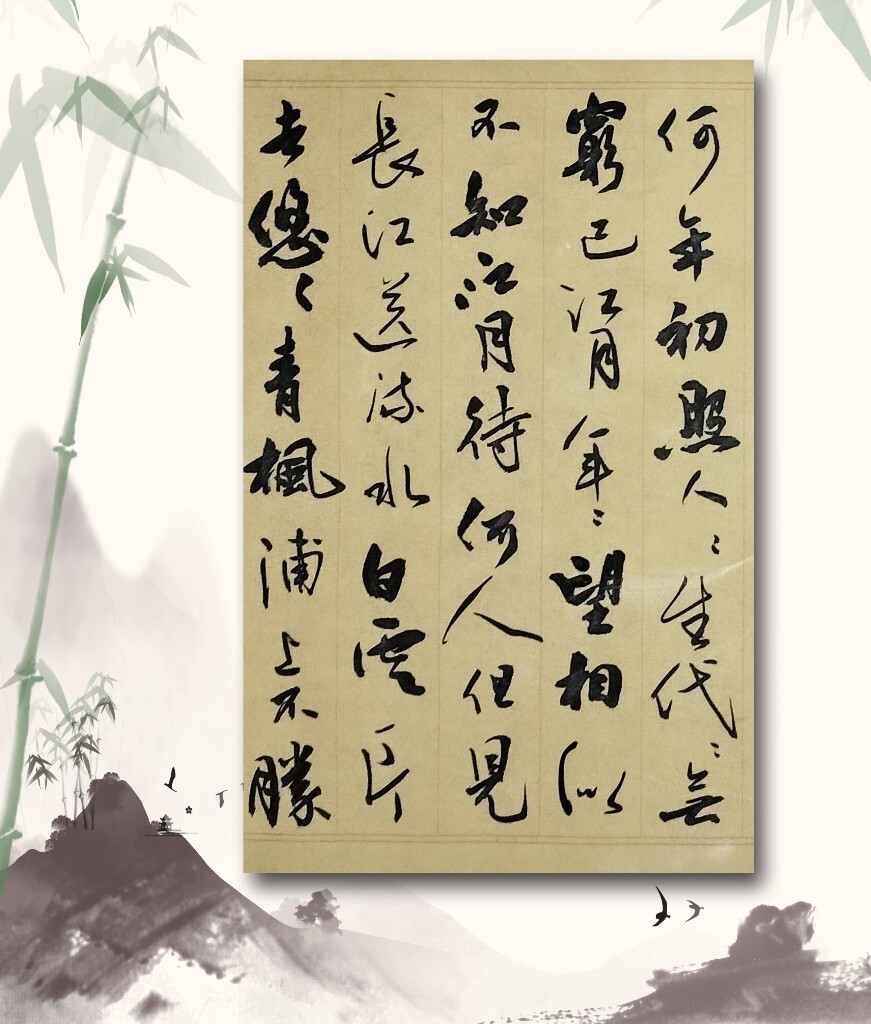 何年初照人〻生代〻無
窮已江月年〻望相似
不知江月待何人但見
長江送流水白雲一片
去悠〻青楓浦上不勝